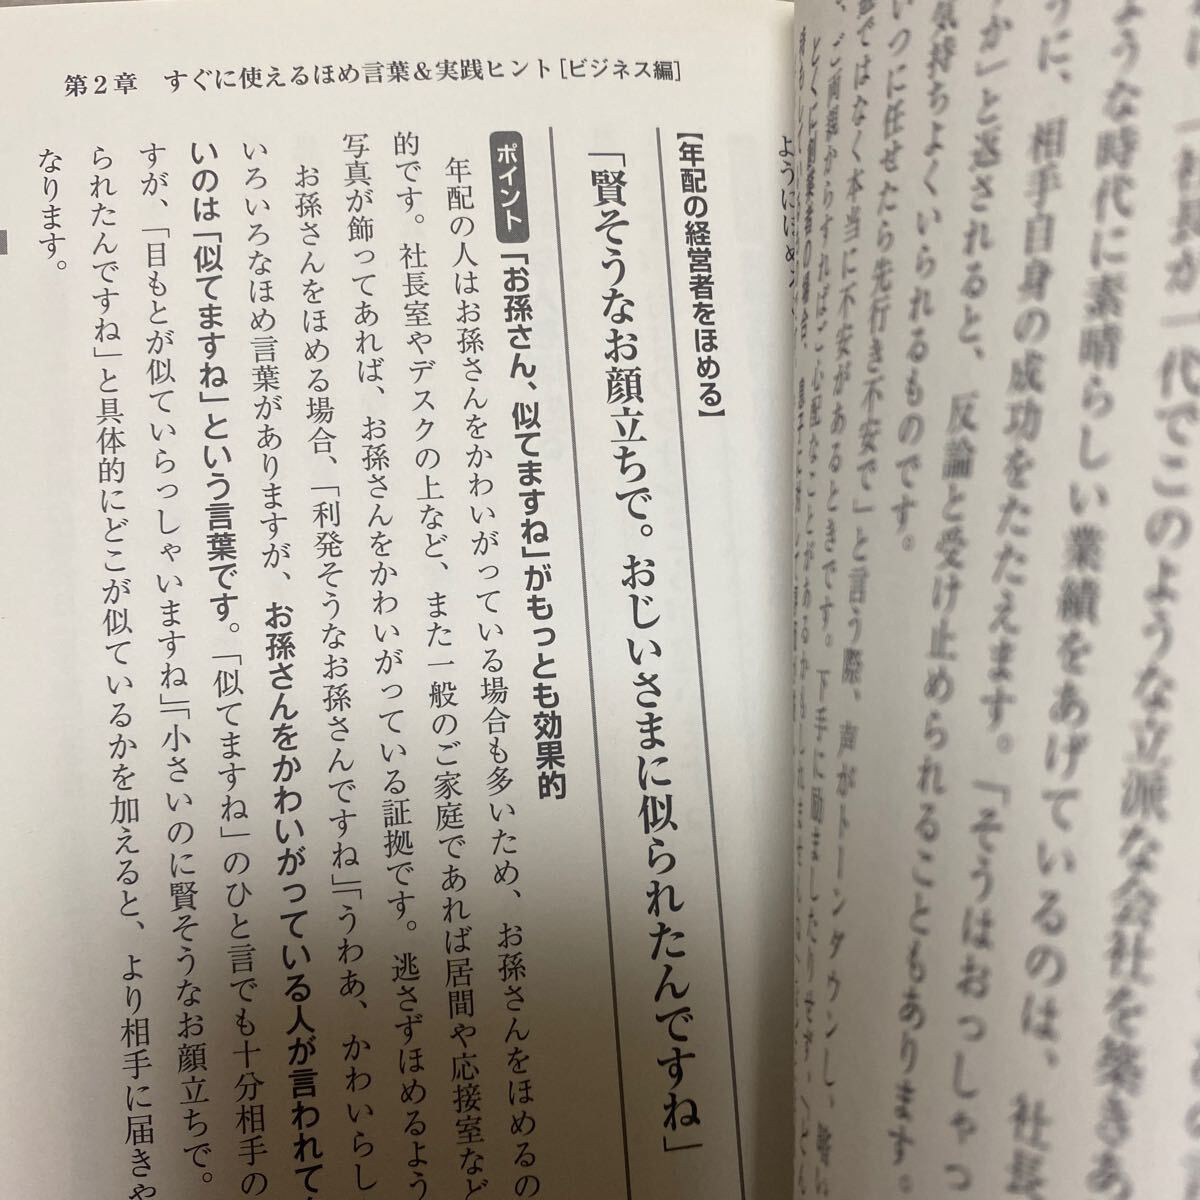 第2章　すぐに使えるほめ言葉＆実践ヒント［ビジネス編］
ような時代に素晴らしい業績をあげているのは、社長
うに、相手自身の成功をたたえます。「そうはおっしゃっ
か」と返されると、反論と受け止められることもあります。
気持ちよくいられるものです。
いつに任せたら先行き不安で」と言う際、声がトーンダウンし、
ではなく本当に不安があるときです。下手に励ましたりせず、
ように
【年配の経営者をほめる】
「賢そうなお顔立ちで。おじいさまに似られたんですね」
ポイント 「お孫さん、似てますね」がもっとも効果的
年配の人はお孫さんをかわいがっている場合も多いため、お孫さんをほめるの
的です。社長室やデスクの上など、また一般のご家庭であれば居間や応接室など
写真が飾ってあれば、お孫さんをかわいがっている証拠です。逃さずほめるよう
お孫さんをほめる場合、「利発そうなお孫さんですね」「うわあ、かわいらし
いろいろなほめ言葉がありますが、お孫さんをかわいがっている人が言われて
いのは「似てますね」という言葉です。「似てますね」のひと言でも十分相手の
すが、「目もとが似ていらっしゃいますね」「小さいのに賢そうなお顔立ちで。
られたんですね」と具体的にどこが似ているかを加えると、より相手に届きや
なります。